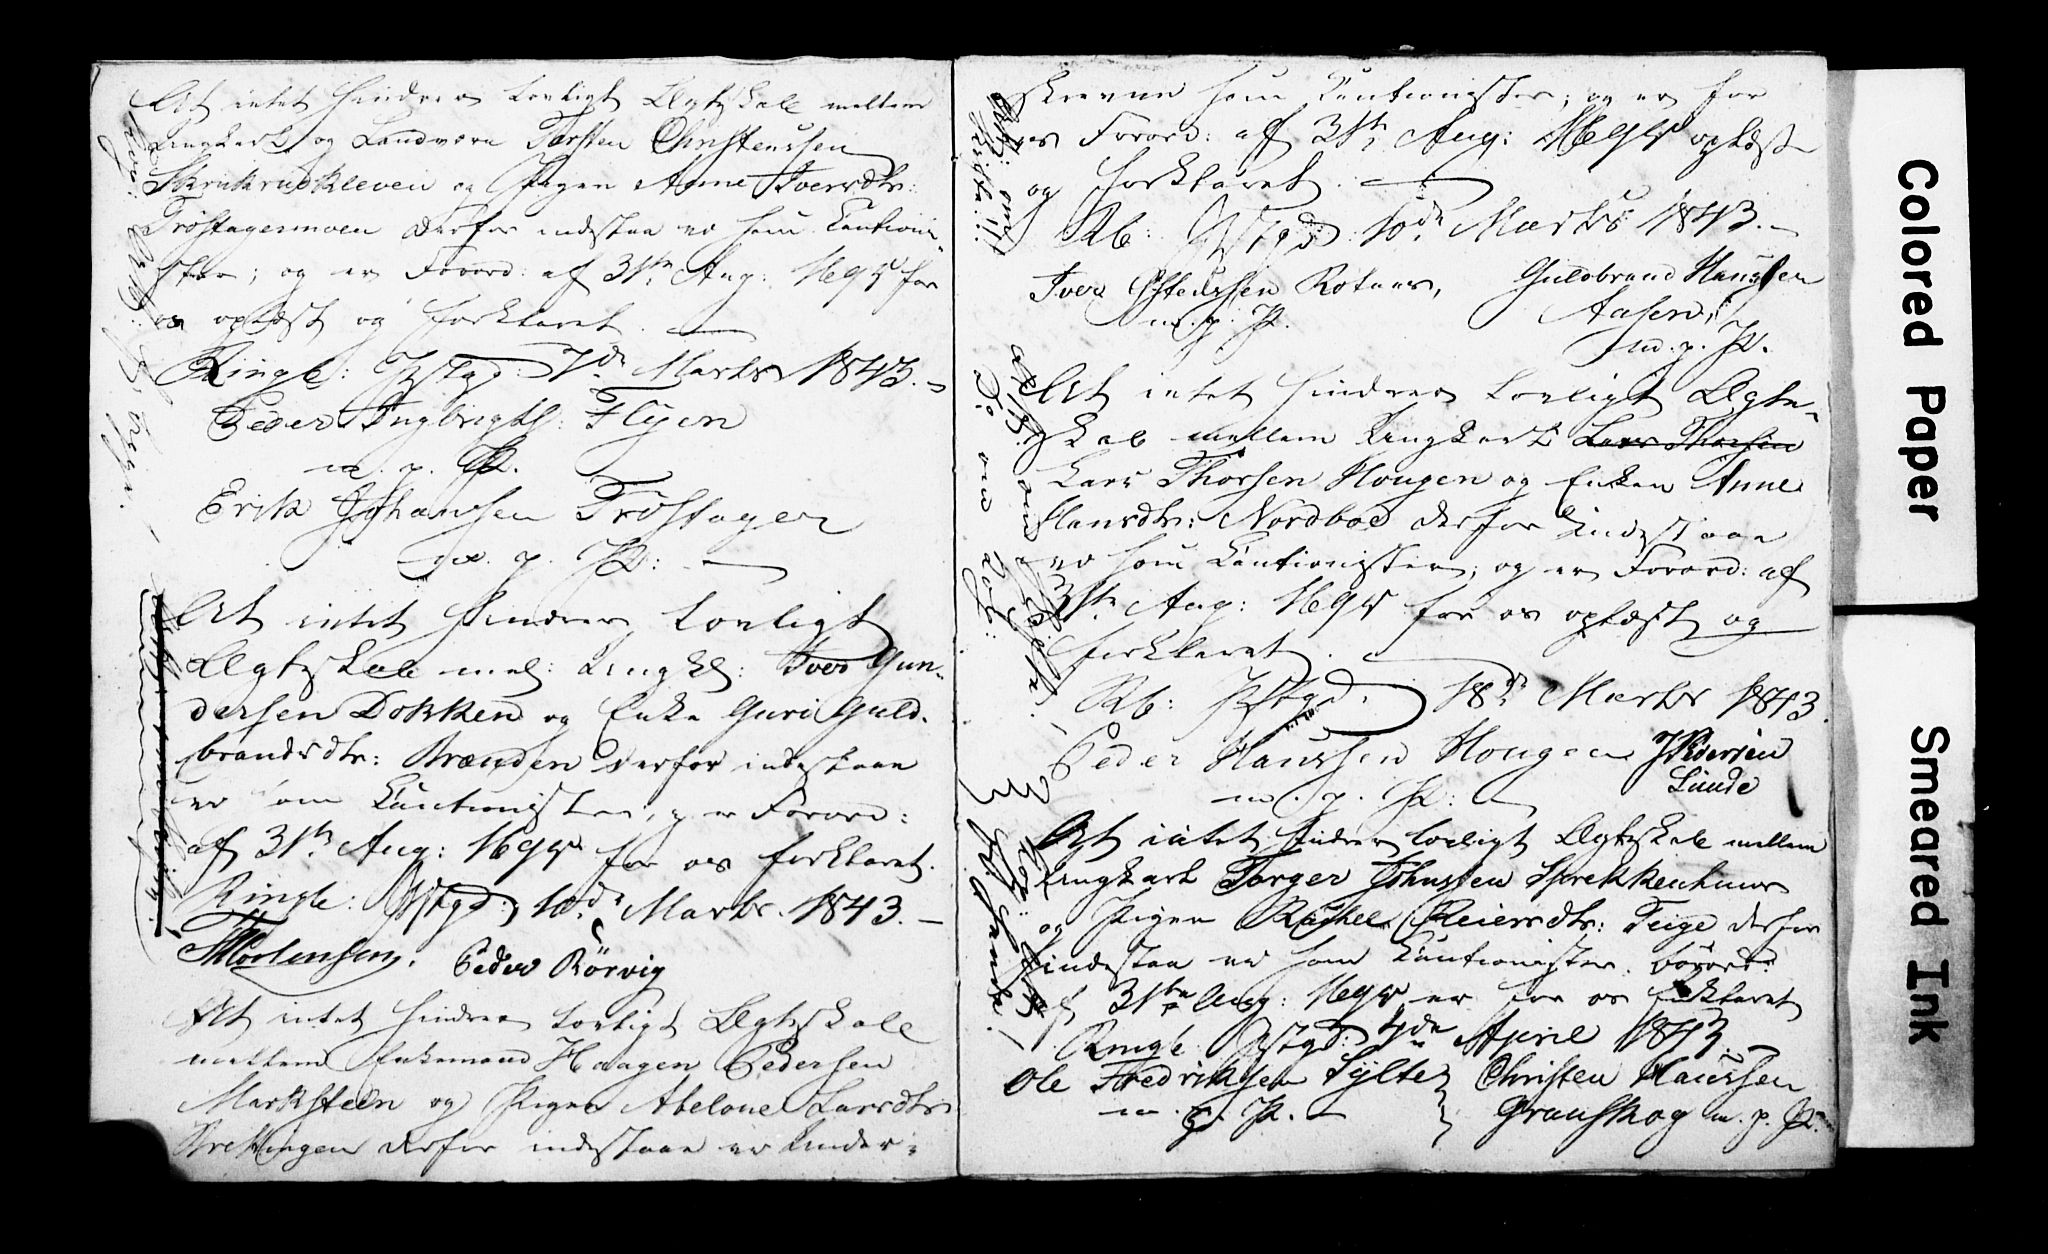 At intet hindrer lovligt Ægteskab mellem
Ungkarl og Landværn Torsten Christenssen
Skrukrudkleven og Pigen Anne Iversdtr:
Trøstagermoen derfor indestaa vi som Cautioni-
ster; og er Forord: af 31te Aug: 1695 for
os oplæst og forklaret. —
Ringb: Pstgd: 7de Marts 1843. —
Peder Ingbrigts: Flyen
m. p. P.
Erik Johansen Trøstager
m. p. P: —
At intet hindrer lovligt
Ægteskab mel: Ungkl: Iver Gun-
dersen Dokken og Enke Guri Guld-
brandsdtr: Brænden derfor indestaae
vi som Cautionister, og er Forord:
af 31te Aug: 1695 for os forklaret.
Ringb: Pstgd: 10de Marts 1843. —
Mortensen. Peder Rörvig
At intet hindrer lovligt Ægteskab
mellem Enkemand Haagen Pedersen
Marksteen og Pigen Abelone Larsdtr
Brekkingen derfor indestaae vi under-
skrevne som Cautionister; og er for
os Forord: af 31te Aug: 1695 oplæst
og forklaret. —
Rb: Pstgd: 10de Marts 1843. —
Iver Ostenssen Rotaas, Guldbrand Hanssen
m. p. P. Aasen,
m. p. P.
At intet hindrer lovligt Ægte-
skab mellem Ungkarl Lars Thorsen
Lars Thorsen Hougen og Enken Anne
Hansdtr: Nordboe derfor indestaae
vi som Cautionister; og er Forord: af
31te Aug: 1695 for os oplæst og
forklaret.
Rb: Pstgd: 18de Marts 1843.
Peder Hanssen Hougen J Pedersen
m. p. P: Lunde
At intet hindrer lovligt Ægteskab mellem
Ungkarl Torger Johnssen Sprekkenhuus
og Pigen Rachel Reiersdtr: Teige derfor
indestaa vi som Cautionister. Forord:
af 31te Aug: 1695 er for os forklaret
Ringb: Pstgd: 4de April 1843.
Ole Fredriksen Sylte Christen Hanssen
m. p. P. — Grauskog m. p. P.
Colored Paper
Smeared Ink